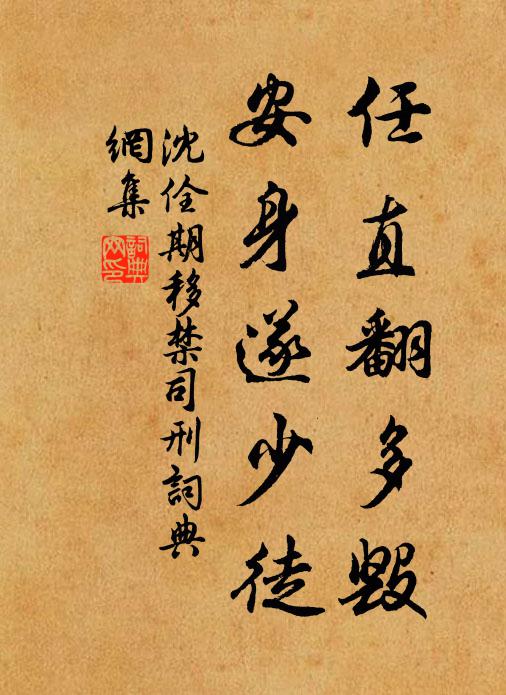 任直翻多毀
安身遂少徒
沈佺期移禁司刑詞典
網集
詞典
网印